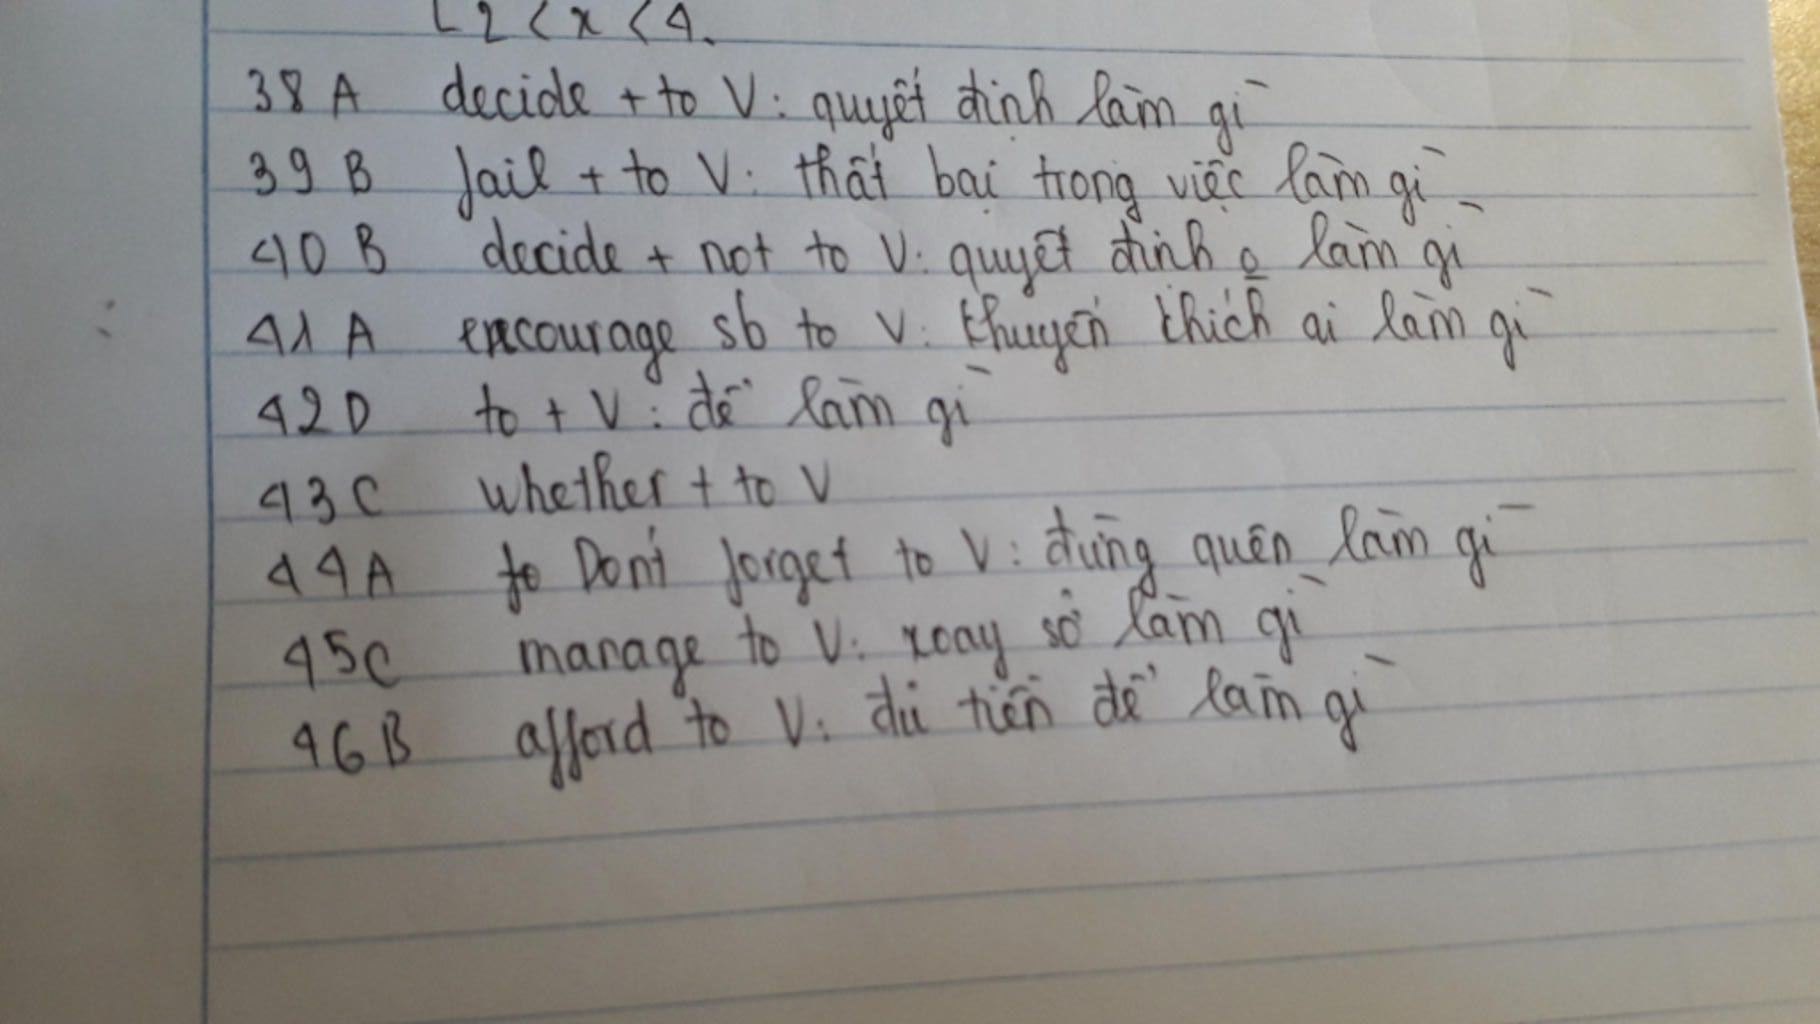 [ 2 < x < 4.
38 A decide + to V: quyết định làm gì
39 B fail + to V: thất bại trong việc làm gì
40 B decide + not to V: quyết định o làm gì
41 A encourage sb to V: khuyến khích ai làm gì
42 D to + V: để làm gì
43 C whether + to V
44 A to Don't forget to V: đừng quên làm gì
45 C manage to V: xoay sở làm gì
46 B afford to V: đủ tiền để làm gì